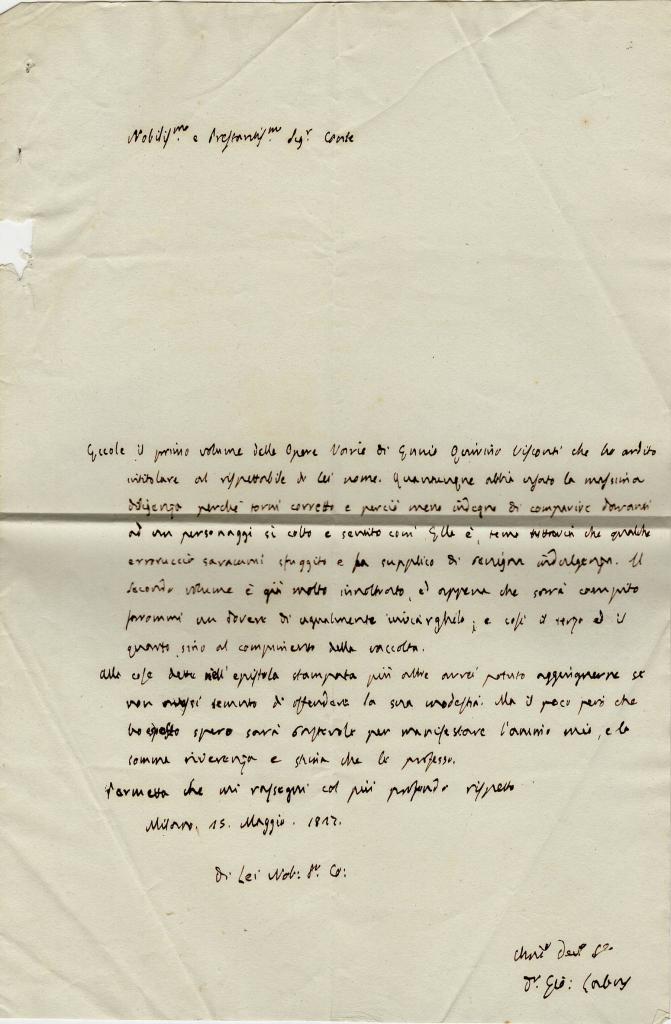 Nobiliss.mo e Prestantiss.mo Sig.r Conte
Eccole il primo volume delle Opere Varie di Ennio Quirino Visconti che ho ardito
intitolare al rispettabile di lei nome. Quantunque abbia usato la massima
diligenza perchè torni corretto e perciò meno indegno di comparire davanti
ad un personaggi sì colto e sentito com' Ella è, temo tuttavia che qualche
erroruccio sarammi sfuggito e la supplico di benigna indulgenza. Il
secondo volume è già molto innoltrato, ed appena che sarà compito
farommi un dovere di egualmente inviarghelo; e così il terzo ed il
quarto sino al compimento della raccolta.
Alle cose dette nell'epistola stampata più altre avrei potuto aggiugnerne se
non avessi temuto di offendere la sua modestia. Ma il poco però che
ho spero sarà bastevole per manifestare l'animo mio, e la
somma riverenza e stima che le professo.
Permetta che mi rassegni col più profondo rispetto
Milano, 15. Maggio. 1817.
Di Lei Nob: S.r Co:
D.r Gio: Labus